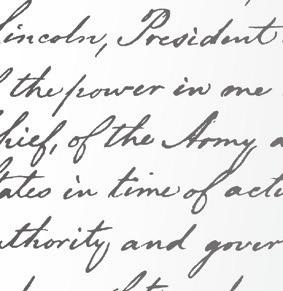 Lincoln, President
the power in me
hief, of the Army a
tates in time of actu
uthority and gover